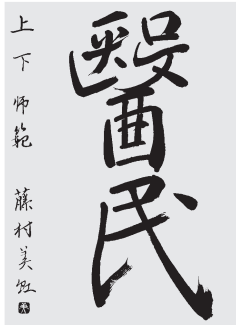 醫民
上下师範 藤村美虹